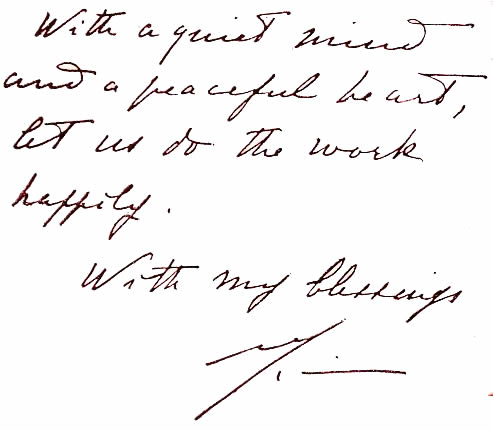 With a quiet mind
and a peaceful heart,
let us do the work
happily.
With my blessings